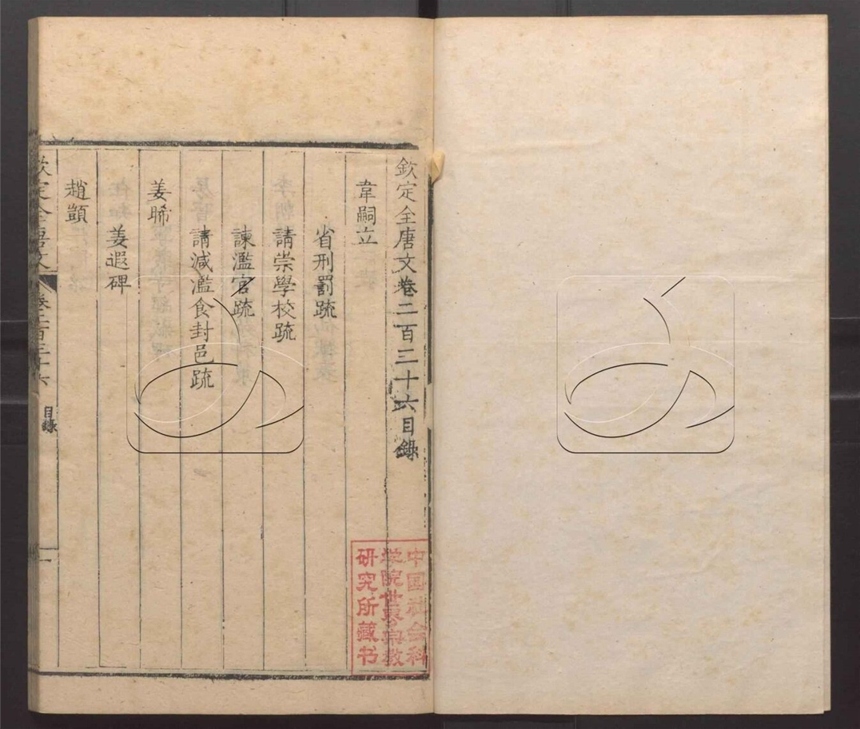 欽定全唐文卷二百三十六目錄
韋嗣立
省刑罰疏
請崇學校疏
諫濫官疏
請減濫食封邑疏
姜晞
姜遐碑
趙顗
欽定全唐文
卷二百三十六
目錄
一
中国社会科
学院世界宗教
研究所藏书